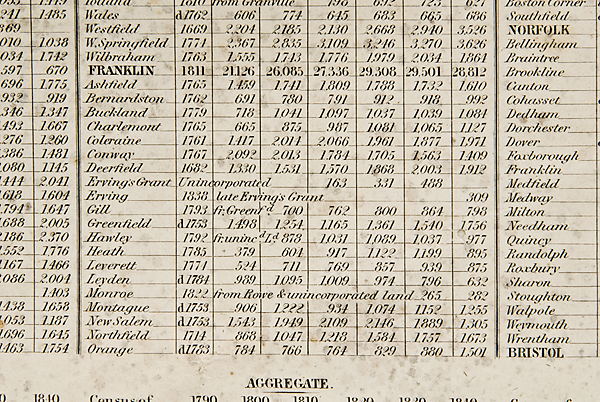 Ioland 1810 from Granville 198 692 123 627 Boston Corner
241 1485 Wales d1762 606 774 645 683 665 686 Southfield
869 Westfield 1669 2,204 2185 2,130 2,668 2,940 3,526 NORFOLK
010 1,038 W.Springfield 1774 2,367 2,835 3,109 3,246 3,270 3,626 Bellingham
034 1,742 Wilbraham 1763 1,555 1,743 1,776 1,979 2,034 1,864 Braintree
597 670 FRANKLIN 1811 21,126 26,085 27,336 29,308 29,501 28,812 Brookline
696 1,775 Ashfield 1765 1,459 1,741 1,809 1,788 1,732 1,610 Canton
932 919 Bernardston 1762 691 780 791 912 918 992 Cohasset
346 1,347 Buckland 1779 718 1,041 1,097 1,037 1,039 1,084 Dedham
493 1,667 Charlemont 1765 665 875 987 1,081 1,065 1,127 Dorchester
276 1,260 Coleraine 1761 1,417 2,014 2,066 1,961 1,877 1,971 Dover
386 1,481 Conway 1767 2,092 2,013 1,784 1,705 1,563 1,409 Foxborough
080 1,145 Deerfield 1682 1,330 1,531 1,570 1,868 2,003 1,912 Franklin
444 2,041 Erving's Grant Unincorporated 163 331 488 Medfield
618 1,604 Erving 1838 late Erving's Grant 309 Medway
794 1,647 Gill 1793 fr.Greenfd 700 762 800 864 798 Milton
688 2,005 Greenfield d1753 1,498 1,254 1,165 1,361 1,540 1,756 Needham
186 2,370 Hawley 1792 fr.unincd Ld 878 1,031 1,089 1,037 977 Quincy
552 1,776 Heath 1785 379 604 917 1,122 1,199 895 Randolph
167 1,466 Leverett 1774 524 711 769 857 939 875 Roxbury
086 2,004 Leyden d1784 989 1,095 1,009 974 796 632 Sharon
1,403 Monroe 1822 from Rowe & unincorporated land 265 282 Stoughton
438 1,658 Montague d1753 906 1,222 934 1,074 1,152 1,255 Walpole
053 1,187 New Salem d1753 1,543 1,949 2,109 2,146 1,889 1,305 Weymouth
696 1,645 Northfield 1714 868 1,047 1,218 1,584 1,757 1,673 Wrentham
463 1,754 Orange d1783 784 766 764 829 880 1,501 BRISTOL
AGGREGATE.
0 1840 Census of 1790 1800 1810 1820 1830 1840